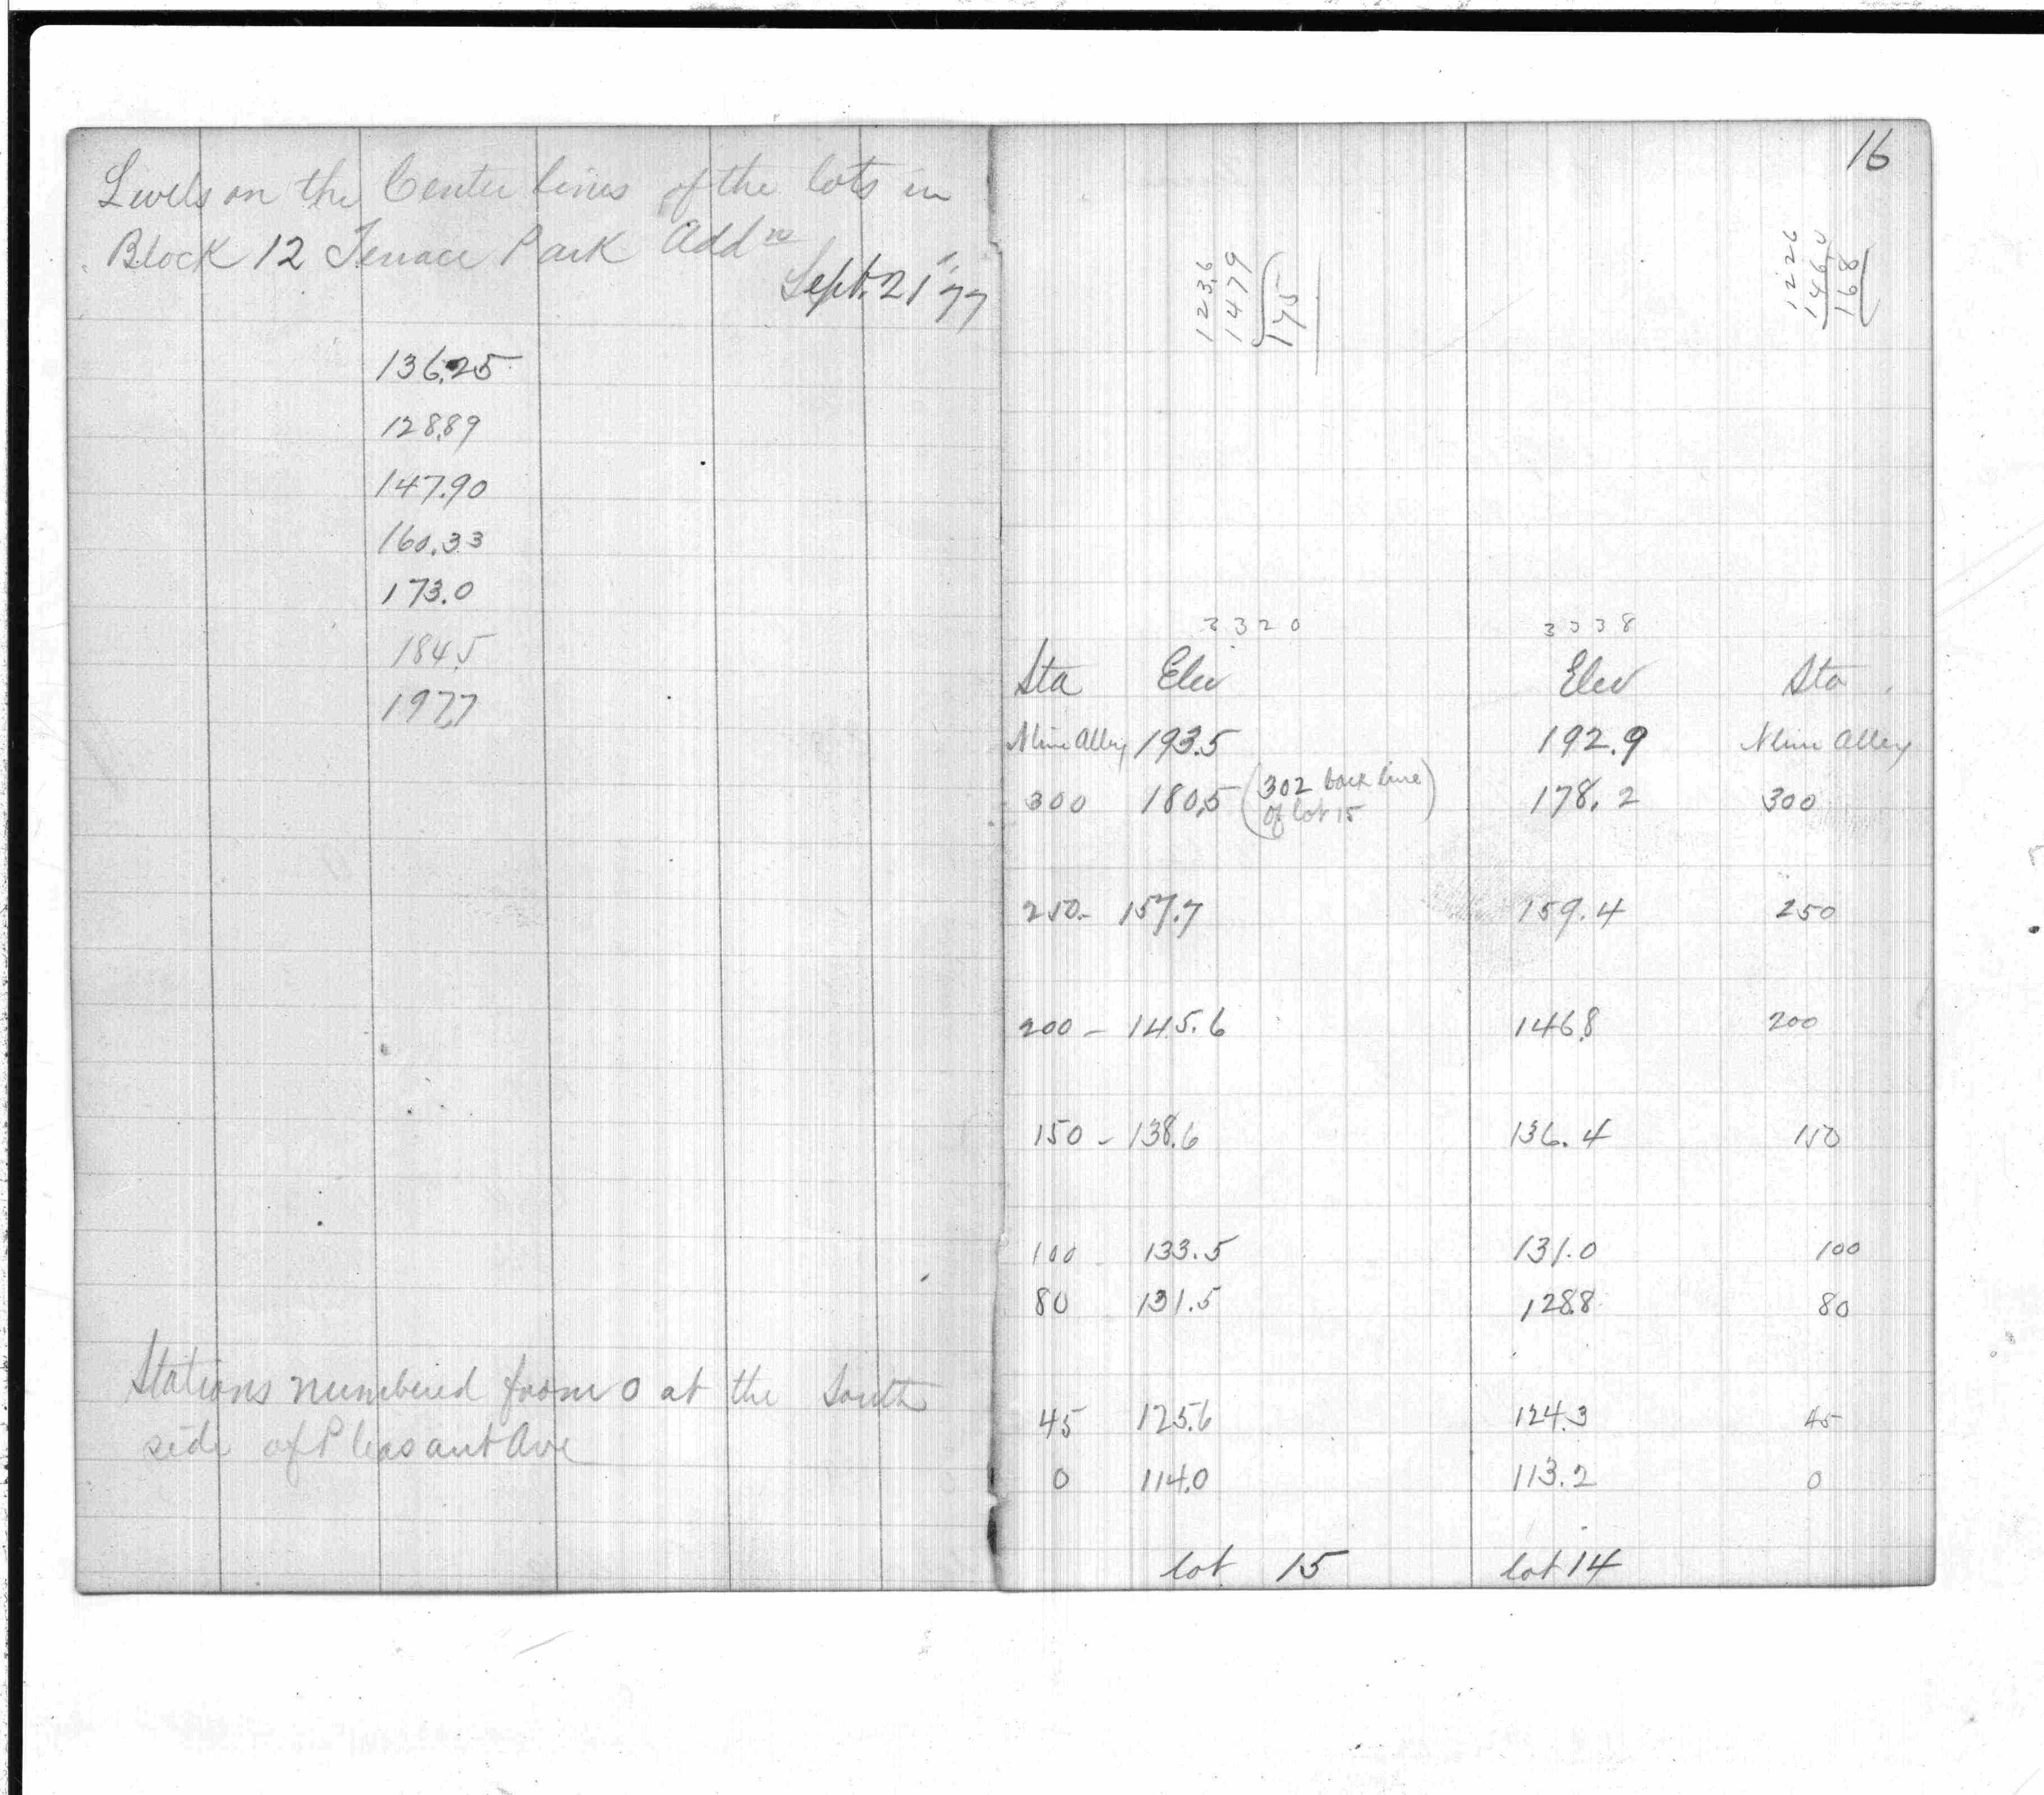 Levels on the Center lines of the lots in
Block 12 Terrace Park Addn
Sept. 21 '77
136.25
128.89
147.90
160.33
173.0
184.5
197.7
Stations numbered from 0 at the South
side of Pleasant Ave
16
123.6
147 9
175
122 6
146.0
168
3320 3338
Sta Elev Elev Sta
N line Alley 193.5 192.9 N line Alley
300 180.5 (302 back line of lot 15) 178.2 300
250- 157.7 159.4 250
200 - 145.6 146.8 200
150 - 138.6 136.4 150
100 133.5 131.0 100
80 131.5 128.8 80
45 125.6 124.3 45
0 114.0 113.2 0
lot 15 lot 14